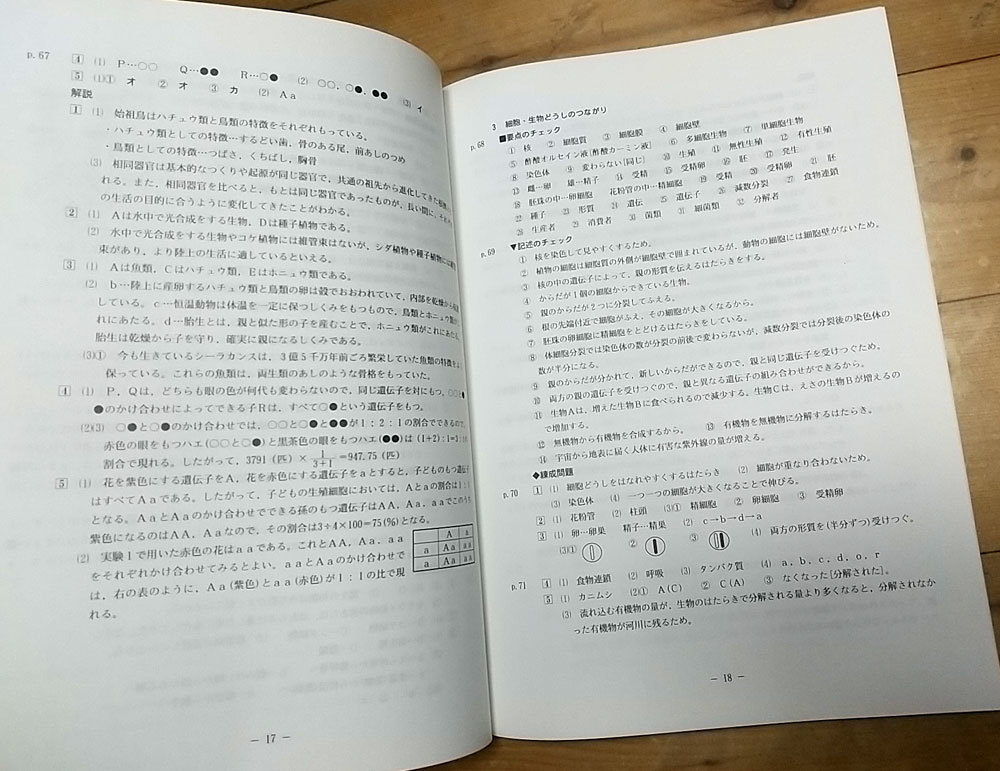 p.67
4 (1) P…○○ Q…●● R…○● (2) ○○, ○●, ●● (3) イ
5 (1)① オ ② オ ③ カ (2) Aa
解説
1 (1) 始祖鳥はハチュウ類と鳥類の特徴をそれぞれもっている。
・ハチュウ類としての特徴…するどい歯, 骨のある尾, 前あしのつめ
・鳥類としての特徴…つばさ, くちばし, 胸骨
(3) 相同器官は基本的なつくりや起源が同じ器官で, 共通の祖先から進化してきた
れる。また, 相同器官を比べると, もとは同じ器官であったものが, 長い間に,
の生活の目的に合うように変化してきたことがわかる。
2 (1) Aは水中で光合成をする生物, Dは種子植物である。
(2) 水中で光合成をする生物やコケ植物には維管束はないが, シダ植物や種子植物には維管
束があり, より陸上の生活に適しているといえる。
3 (1) Aは魚類, Cはハチュウ類, Eはホニュウ類である。
(2) b…陸上に産卵するハチュウ類と鳥類の卵は殻でおおわれていて, 内部を乾燥から
している。c…恒温動物は体温を一定に保つしくみをもつもので, 鳥類とホニュウ類が
れにあたる。d…胎生とは, 親と似た形の子を産むことで, ホニュウ類がこれにあた
胎生は乾燥から子を守り, 確実に親になるしくみである。
(3)① 今も生きているシーラカンスは, 3億5千万年前ごろ繁栄していた魚類の特徴を
保っている。これらの魚類は, 両生類のあしのような骨格をもっていた。
4 (1) P, Qは, どちらも眼の色が何代も変わらないので, 同じ遺伝子を対にもつ。○○と●
●のかけ合わせによってできる子Rは, すべて○●という遺伝子をもつ。
(2)(3) ○●と○●のかけ合わせでは, ○○と○●と●●が1:2:1の割合でできるので,
赤色の眼をもつハエ(○○と○●)と黒茶色の眼をもつハエ(●●)は(1+2):1=3:1の
割合で現れる。したがって, 3791(匹)×1/(3+1)=947.75(匹)
5 (1) 花を紫色にする遺伝子をA, 花を赤色にする遺伝子をaとすると, 子どものもつ遺伝子
はすべてAaである。したがって, 子どもの生殖細胞においては, Aとaの割合は1:1
となる。AaとAaのかけ合わせでできる孫のもつ遺伝子はAA, Aa, aaでこのうち
紫色になるのはAA, Aaなので, その割合は3÷4×100=75(%)となる。
(2) 実験1で用いた赤色の花はaaである。これとAA, Aa, aa
をそれぞれかけ合わせてみるとよい。aaとAaのかけ合わせで
は, 右の表のように, Aa(紫色)とaa(赤色)が1:1の比で現
れる。
A a
a Aa aa
a Aa aa
− 17 −
3 細胞・生物どうしのつながり
p.68 ■要点のチェック
① 核 ② 細胞質 ③ 細胞膜 ④ 細胞壁
⑤ 酢酸オルセイン液[酢酸カーミン液] ⑥ 多細胞生物 ⑦ 単細胞生物
⑧ 染色体 ⑨ 変わらない[同じ] ⑩ 生殖 ⑪ 無性生殖 ⑫ 有性生殖
⑬ 雌…卵 雄…精子 ⑭ 受精 ⑮ 受精卵 ⑯ 胚 ⑰ 発生
⑱ 胚珠の中…卵細胞 花粉管の中…精細胞 ⑲ 受精 ⑳ 受精卵 ㉑ 胚
㉒ 種子 ㉓ 形質 ㉔ 遺伝 ㉕ 遺伝子 ㉖ 減数分裂 ㉗ 食物連鎖
㉘ 生産者 ㉙ 消費者 ㉚ 菌類 ㉛ 細菌類 ㉜ 分解者
p.69 ▼記述のチェック
① 核を染色して見やすくするため。
② 植物の細胞は細胞質の外側が細胞壁で囲まれているが, 動物の細胞には細胞壁がないため。
③ 核の中の遺伝子によって, 親の形質を伝えるはたらきをする。
④ からだが1個の細胞からできている生物。
⑤ 親のからだが2つに分裂してふえる。
⑥ 根の先端付近で細胞がふえ, その細胞が大きくなるから。
⑦ 胚珠の卵細胞に精細胞をとどけるはたらきをしている。
⑧ 体細胞分裂では染色体の数が分裂の前後で変わらないが, 減数分裂では分裂後の染色体の
数が半分になる。
⑨ 親のからだが分かれて, 新しいからだができるので, 親と同じ遺伝子を受けつぐため。
⑩ 両方の親の遺伝子を受けつぐので, 親と異なる遺伝子の組み合わせができるから。
⑪ 生物Aは, 増えた生物Bに食べられるので減少する。生物Cは, えさの生物Bが増えるの
で増加する。
⑫ 無機物から有機物を合成するから。 ⑬ 有機物を無機物に分解するはたらき。
⑭ 宇宙から地表に届く人体に有害な紫外線の量が増える。
◆練成問題
p.70 1 (1) 細胞どうしをはなれやすくするはたらき (2) 細胞が重なり合わないため。
(3) 染色体 (4) 一つ一つの細胞が大きくなることで伸びる。
2 (1) 花粉管 (2) 柱頭 (3)① 精細胞 ② 卵細胞 ③ 受精卵
3 (1) 卵…卵巣 精子…精巣 (2) c→b→d→a
(3)① ② ③ (4) 両方の形質を(半分ずつ)受けつぐ。
p.71 4 (1) 食物連鎖 (2) 呼吸 (3) タンパク質 (4) a, b, c, d, o, r
5 (1) カニムシ (2)① A(C) ② C(A) ③ なくなった[分解された]。
(3) 流れ込む有機物の量が, 生物のはたらきで分解される量より多くなると, 分解されなか
った有機物が河川に残るため。
− 18 −